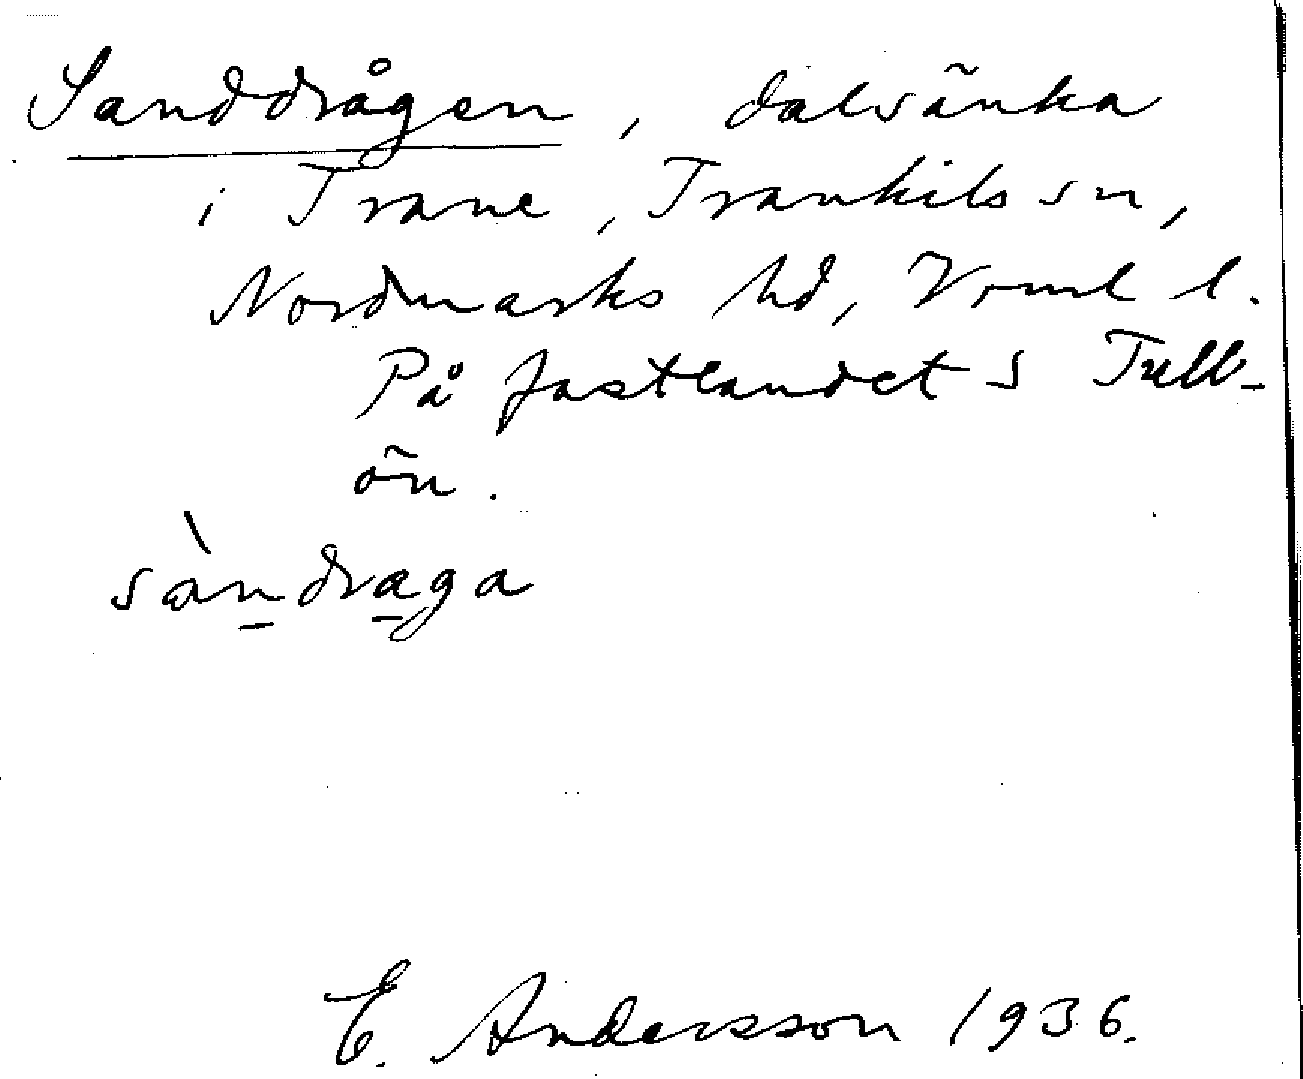 Sanddrågen, dalsänka
i Trane, Trankils sn,
Nordmarks hd, Vrml l.
På fastlandet S Tull-
ön.
sàndraga
E. Andersson 1936.